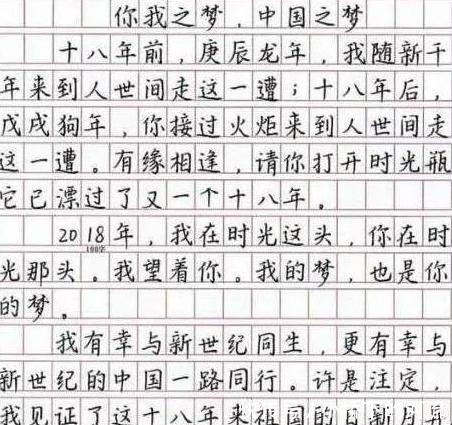 你我之梦，中国之梦
十八年前，庚辰龙年，我随新千
年来到人世间走这一遭；十八年后，
戊戌狗年，你接过火炬来到人世间走
这一遭。有缘相逢，请你打开时光瓶
它已漂过了又一个十八年。
2018年，我在时光这头，你在时
100字
光那头。我望着你。我的梦，也是你
的梦。
我有幸与新世纪同生，更有幸与
新世纪的中国一路同行。许是注定，
我见证了这十八年来祖国的日新月异